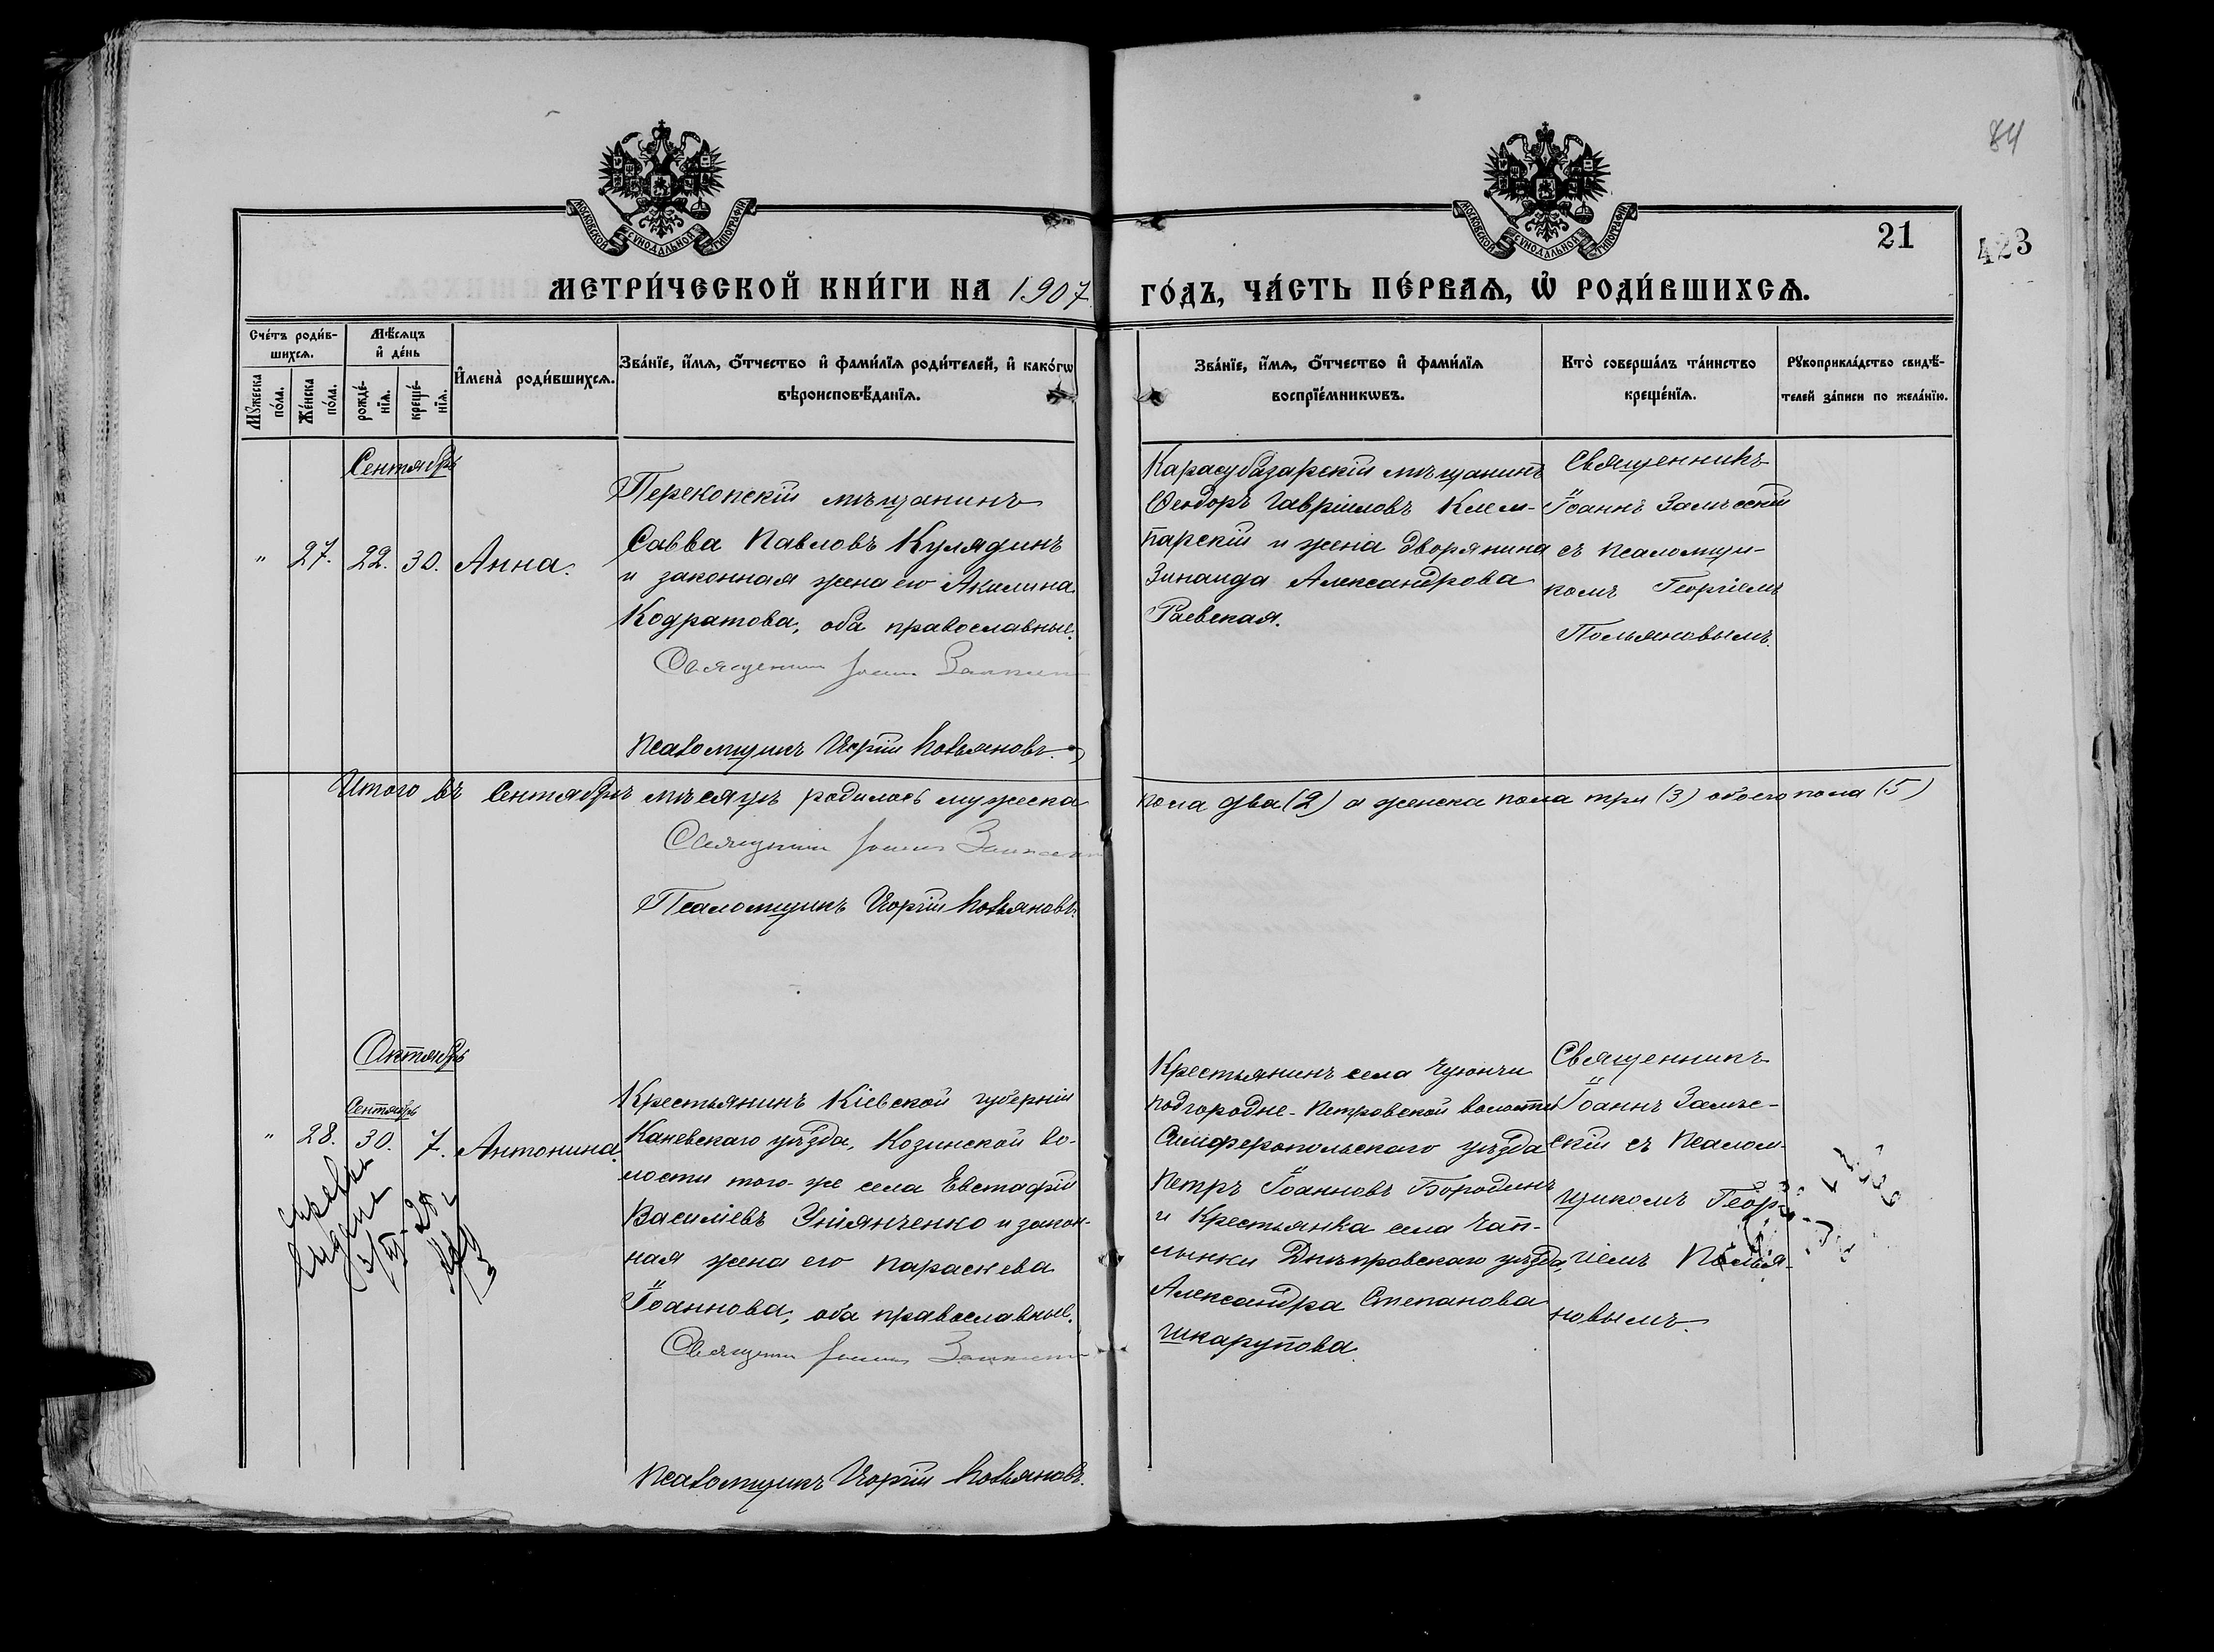 84
МОСКОВСКОЙ СУНОДАЛЬНОЙ ТИПОГРАФІИ
МОСКОВСКОЙ СУНОДАЛЬНОЙ ТИПОГРАФІИ
21
423
МЕТРИ́ЧЕСКОЙ КНИ́ГИ НА 1907
ГО́ДЪ, ЧА́СТЬ ПЕ́РВАѦ, Ѡ҆ РОДИ́ВШИХСѦ.
Сче́тъ роди́в-
шихсѧ.
Мѣ́сѧцъ
и҆ де́нь
Мꙋ́жеска
по́ла.
Же́нска
по́ла.
рожде́-
нїѧ.
креще́-
нїѧ.
И҆мена̀ роди́вшихсѧ.
Зва́нїе, и҆́мѧ, ѻ҆́тчество и҆ фами́лїѧ роди́телей, и҆ како́гѡ
вѣроисповѣ́данїѧ.
Зва́нїе, и҆́мѧ, ѻ҆́тчество и҆ фами́лїѧ
воспрїе́мникѡвъ.
Кто̀ соверша́лъ та́инство
креще́нїѧ.
Рꙋкоприкла́дство свидѣ́-
телей за́писи по жела́нїю.
Сентябрь
" 27. 22. 30. Анна.
Перекопскій мѣщанинъ
Савва Павловъ Кулядинъ
и законная жена его Акилина
Кодратова, оба православные.
Священник Іоанн
Псаломщикъ Георгій Польяновъ.
Карасубазарскій мѣщанинъ
Ѳеодоръ Гавріиловъ Клем-
парскій и жена дворянина
Зинаида Александрова
Раевская.
Священникъ
Іоаннъ Замѣсскій
съ псаломщи-
комъ Георгіемъ
Польяновымъ.
Итого въ Сентябрѣ мѣсяцѣ родилось мужеска
пола два (2) а женска пола три (3) обоего пола (5)
Священник Іоанн
Псаломщикъ Георгій Польяновъ.
Октябрь
Сентябрь
" 28. 30. 7. Антонина.
Крестьянинъ Кіевской губерніи
Каневскаго уѣзда, Козинской во-
лости того-же села Евстафій
Василіевъ Уніянченко и закон-
ная жена его Параскева
Іоаннова, оба православные.
Священник Іоанн
Псаломщикъ Георгій Польяновъ.
Крестьянинъ села Чуюнчи
Подгородне-Петровской волости
Симферопольскаго уѣзда
Петръ Іоанновъ Бородинъ
и Крестьянка села Чап-
лынки Днѣпровскаго уѣзда,
Александра Степанова
Шкарупова.
Священникъ
Іоаннъ Замѣс-
скій съ псалом-
щикомъ Геор-
гіемъ Полья-
новымъ.